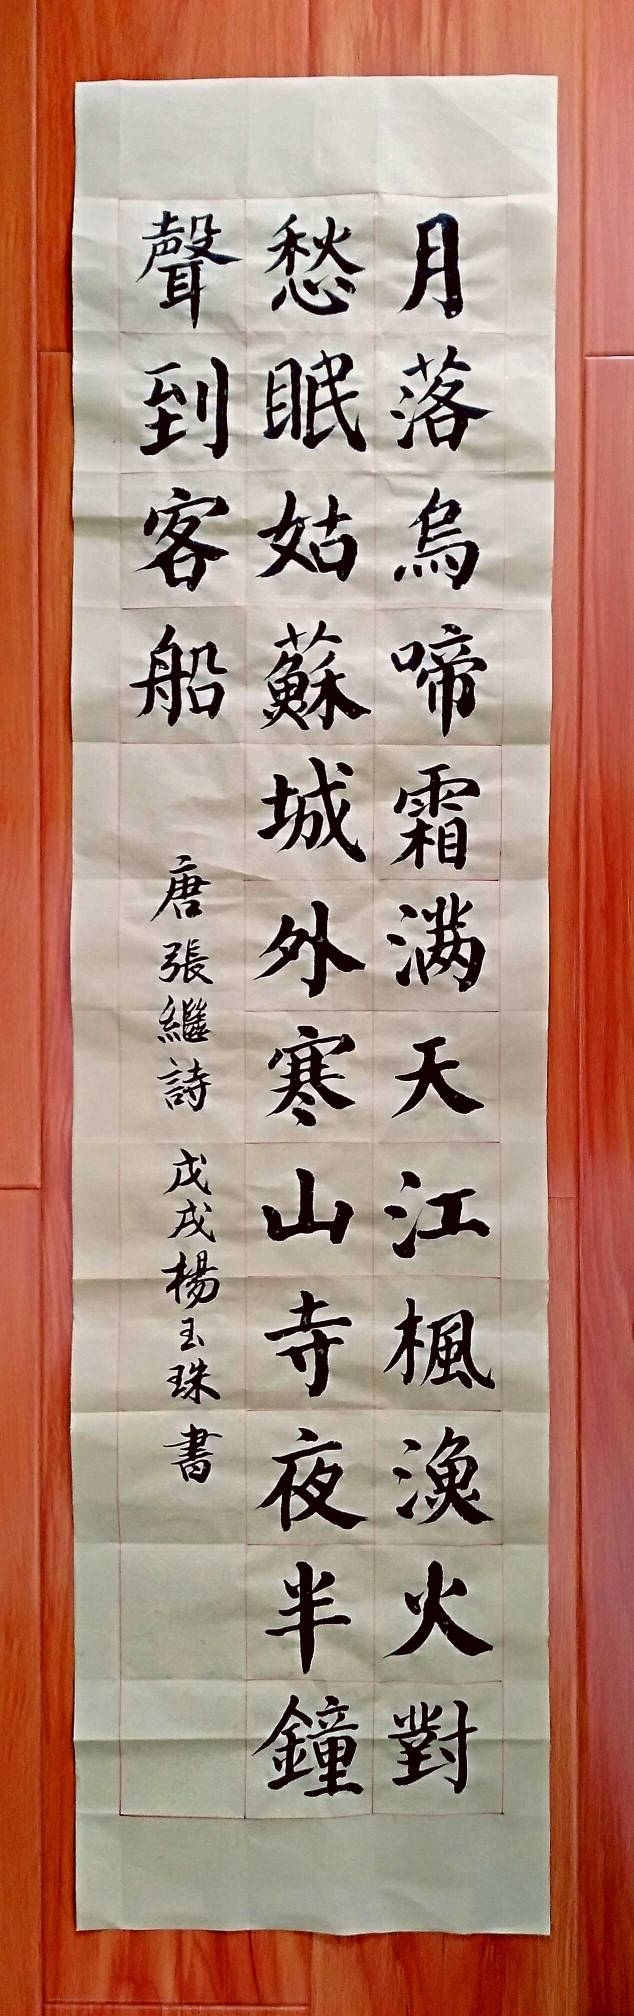 月落烏啼霜满天江楓漁火對
愁眠姑蘇城外寒山寺夜半鐘
聲到客船
唐張繼詩 戊戌楊玉珠書